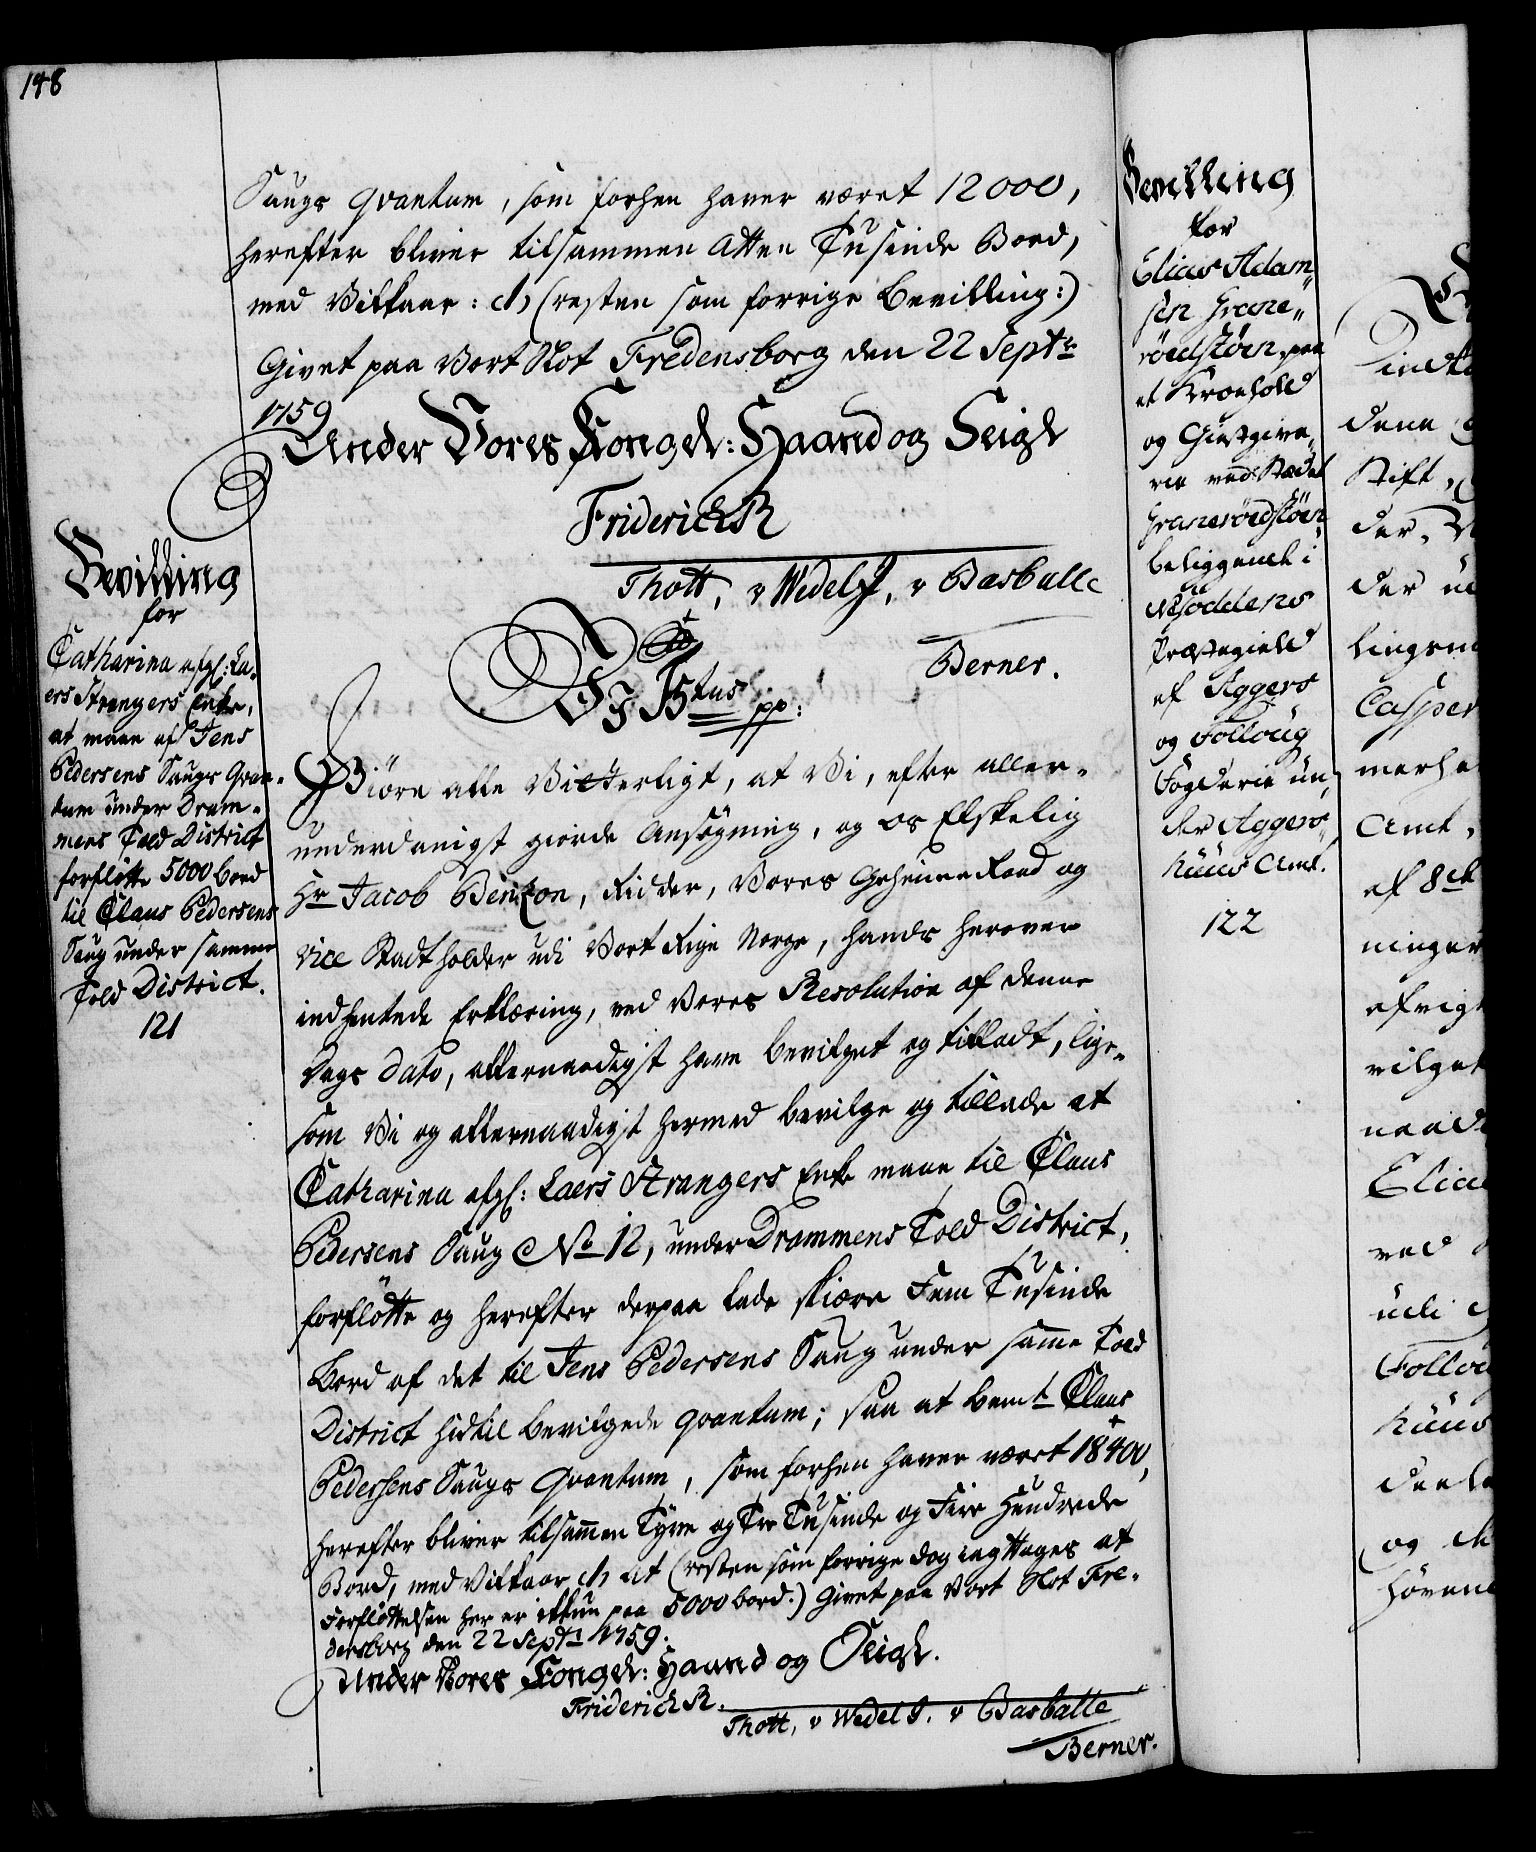 148
Saugs Qvantum, som forhen haver været 12000,
herefter bliver tilsammen Atten Tusinde Bord,
med Vilkaar: (resten som forrige Bevilling:)
Givet paa Vort Slot Fredensborg den 22 Septbr
1759
Under Vores Kongel: Haand og Seigl
Friderich R
Thott, v Wedel J, v Barballe
Berner.
Bevilling
for
Catharina afgl: La„
ers Strangers Enke,
at maae af Jens
Pedersens Saugs Qvan„
tum under Dram„
mens Told District
forflötte 5000 bord
til Claus Pedersens
Saug under samme
Told District.
121
Vj F 5tus pp:
Giöre alle Vitterligt, at Vi, efter aller„
underdanigst giorde Ansögning, og os Elskelig
Hr Jacob Benzon, Ridder, Vores Geheime Raad og
Vice Stadtholder udi Vort Rige Norge, hands herover
indhentede Erklæring, ved Vores Resolution af denne
Dags dato, allernaadigst have bevilget og tilladt, lige„
som Vi og allernaadigst hermed bevilge og tillade at
Catharina afgl: Laers Strangers Enke maae til Claus
Pedersens Saug No 12, under Drammens Told District,
forflötte og herefter derpaa lade skiære Fem Tusinde
Bord af det til Jens Pedersens Saug under samme Told
District hidtil bevilgede qvantum; saa at bemte Claus
Pedersens Saugs Qvantum, som forhen haver været 18400,
herefter bliver tilsammen Tyve og Tre Tusinde og Fire Hundrede
Bord, med Vilkaar at (resten som forrige dog iagttages at
Forflöttelsen her er ikkun paa 5000 bord:) Givet paa Vort Slot Fre„
densborg den 22 Septbr 1759.
Under Vores Kongel: Haand og Seigl.
Friderich R.
Thott, v Wedel J. v Barballe
Berner.
Bevilling
for
Elias Adam„
sen Grane„
röedstöen, paa
et Kroehold
og Giestgive„
rie ved Stædet
Graneröedstöen
beliggende i
Næsoddens
Præstegield
af Aggers
og Folloug
Fogderie un„
der Aggers„
huus Amt.
122
dene
Stift,
der,
Casper
Amt,
af 8de
ninger
vilget
naad
Elia
ved
udi
Follou
huus
og